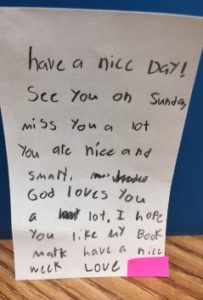 have a nice DAY!
See You on Sunday
miss You a lot
You are nice and
smart,
God loves You
a lot, I hope
You like my Book
mark have a nice
week Love